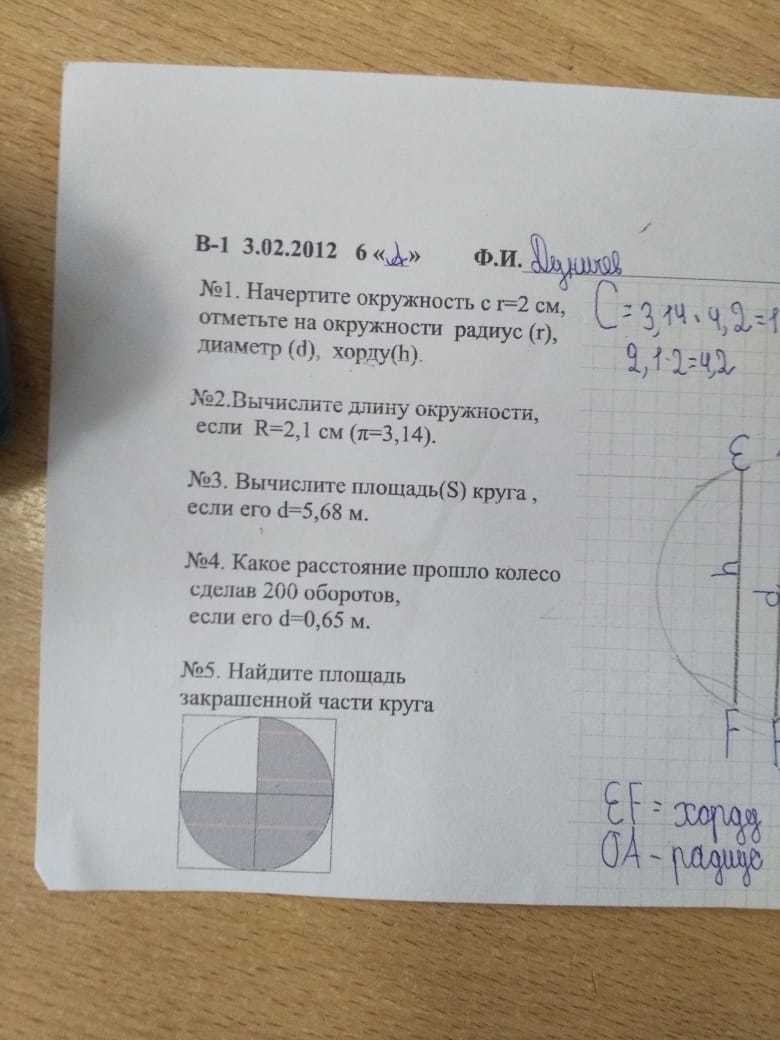 В-1 3.02.2012 6 «А» Ф.И.
№1. Начертите окружность с r=2 см,
отметьте на окружности радиус (r),
диаметр (d), хорду(h).
№2.Вычислите длину окружности,
если R=2,1 см (π=3,14).
№3. Вычислите площадь(S) круга ,
если его d=5,68 м.
№4. Какое расстояние прошло колесо
сделав 200 оборотов,
если его d=0,65 м.
№5. Найдите площадь
закрашенной части круга
C = 3,14 · 4,2 = 1
2,1·2=4,2
E
h
d
F
EF = хорду
OA - радиус